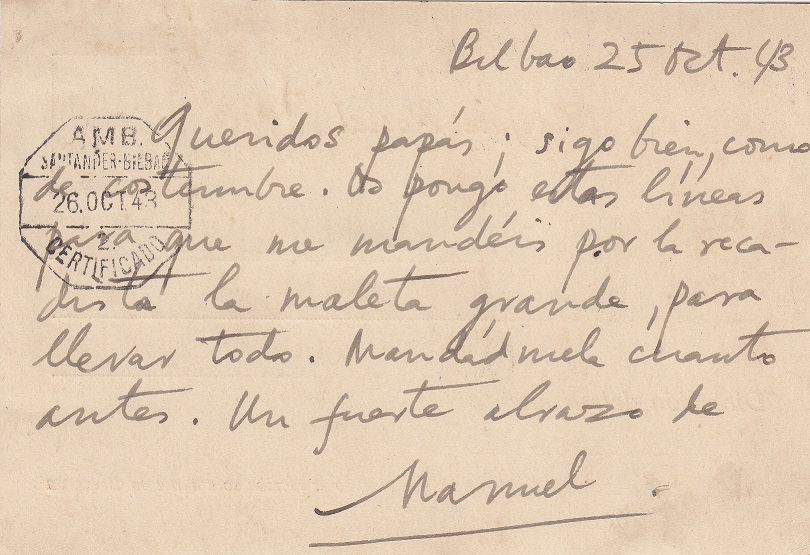 Bilbao 25 Oct. 43
Queridos papás; sigo bien, como
de costumbre. Os pongo estas líneas
para que me mandéis por la reca-
dista la maleta grande, para
llevar todo. Mandádmela cuanto
antes. Un fuerte abrazo de
Manuel.
AMB.
SANTANDER-BILBAO
26.OCT.43
2.
CERTIFICADO